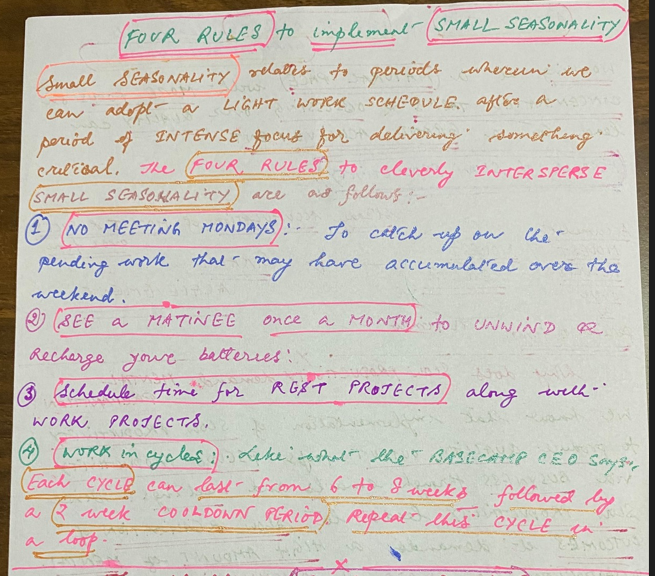 FOUR RULES to implement SMALL SEASONALITY
Small SEASONALITY relates to periods wherein we
can adopt a LIGHT WORK SCHEDULE after a
period of INTENSE focus for delivering something
critical. The FOUR RULES to cleverly INTERSPERSE
SMALL SEASONALITY are as follows:-
① NO MEETING MONDAYS:- To catch up on the
pending work that may have accumulated over the
weekend.
② SEE a MATINEE once a MONTH to UNWIND &
Recharge your batteries!
③ Schedule time for REST PROJECTS along with
WORK PROJECTS.
④ WORK in cycles: Like what the BASECAMP CEO says,
Each CYCLE can last from 6 to 8 weeks followed by
a 2 week COOLDOWN PERIOD. Repeat this CYCLE in
a loop.